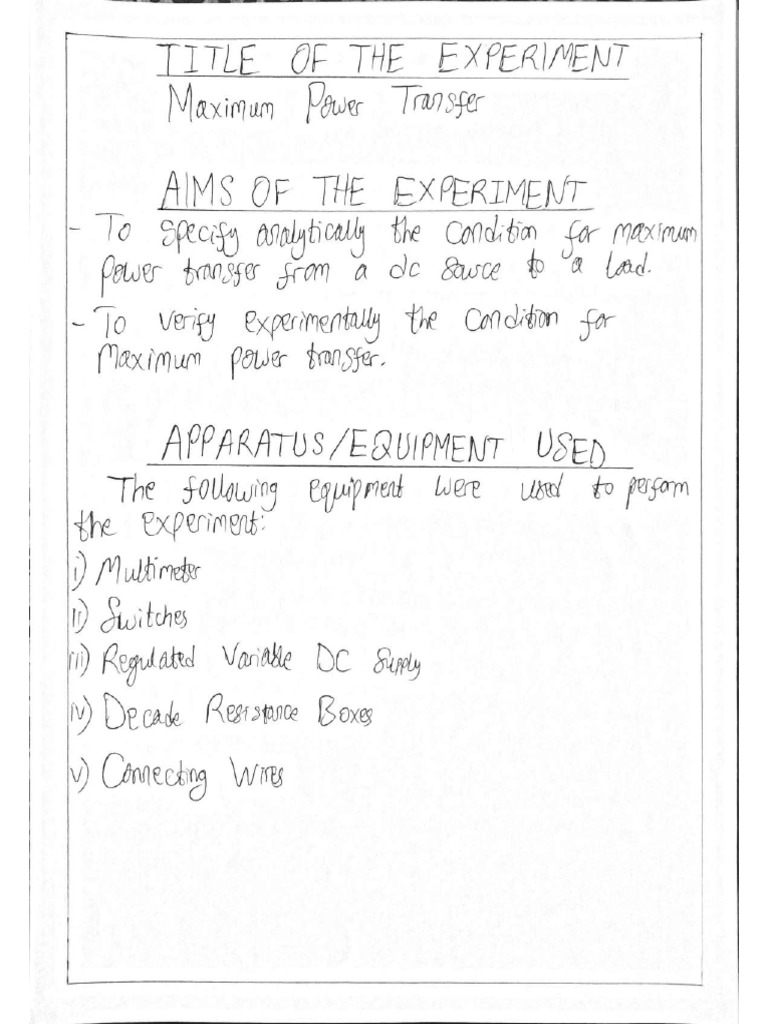 TITLE OF THE EXPERIMENT
Maximum Power Transfer
AIMS OF THE EXPERIMENT
- To specify analytically the condition for maximum
power transfer from a dc source to a load.
- To verify experimentally the condition for
maximum power transfer.
APPARATUS/EQUIPMENT USED
The following equipment were used to perform
the experiment:
i) Multimeter
ii) Switches
iii) Regulated Variable DC Supply
iv) Decade Resistance Boxes
v) Connecting Wires